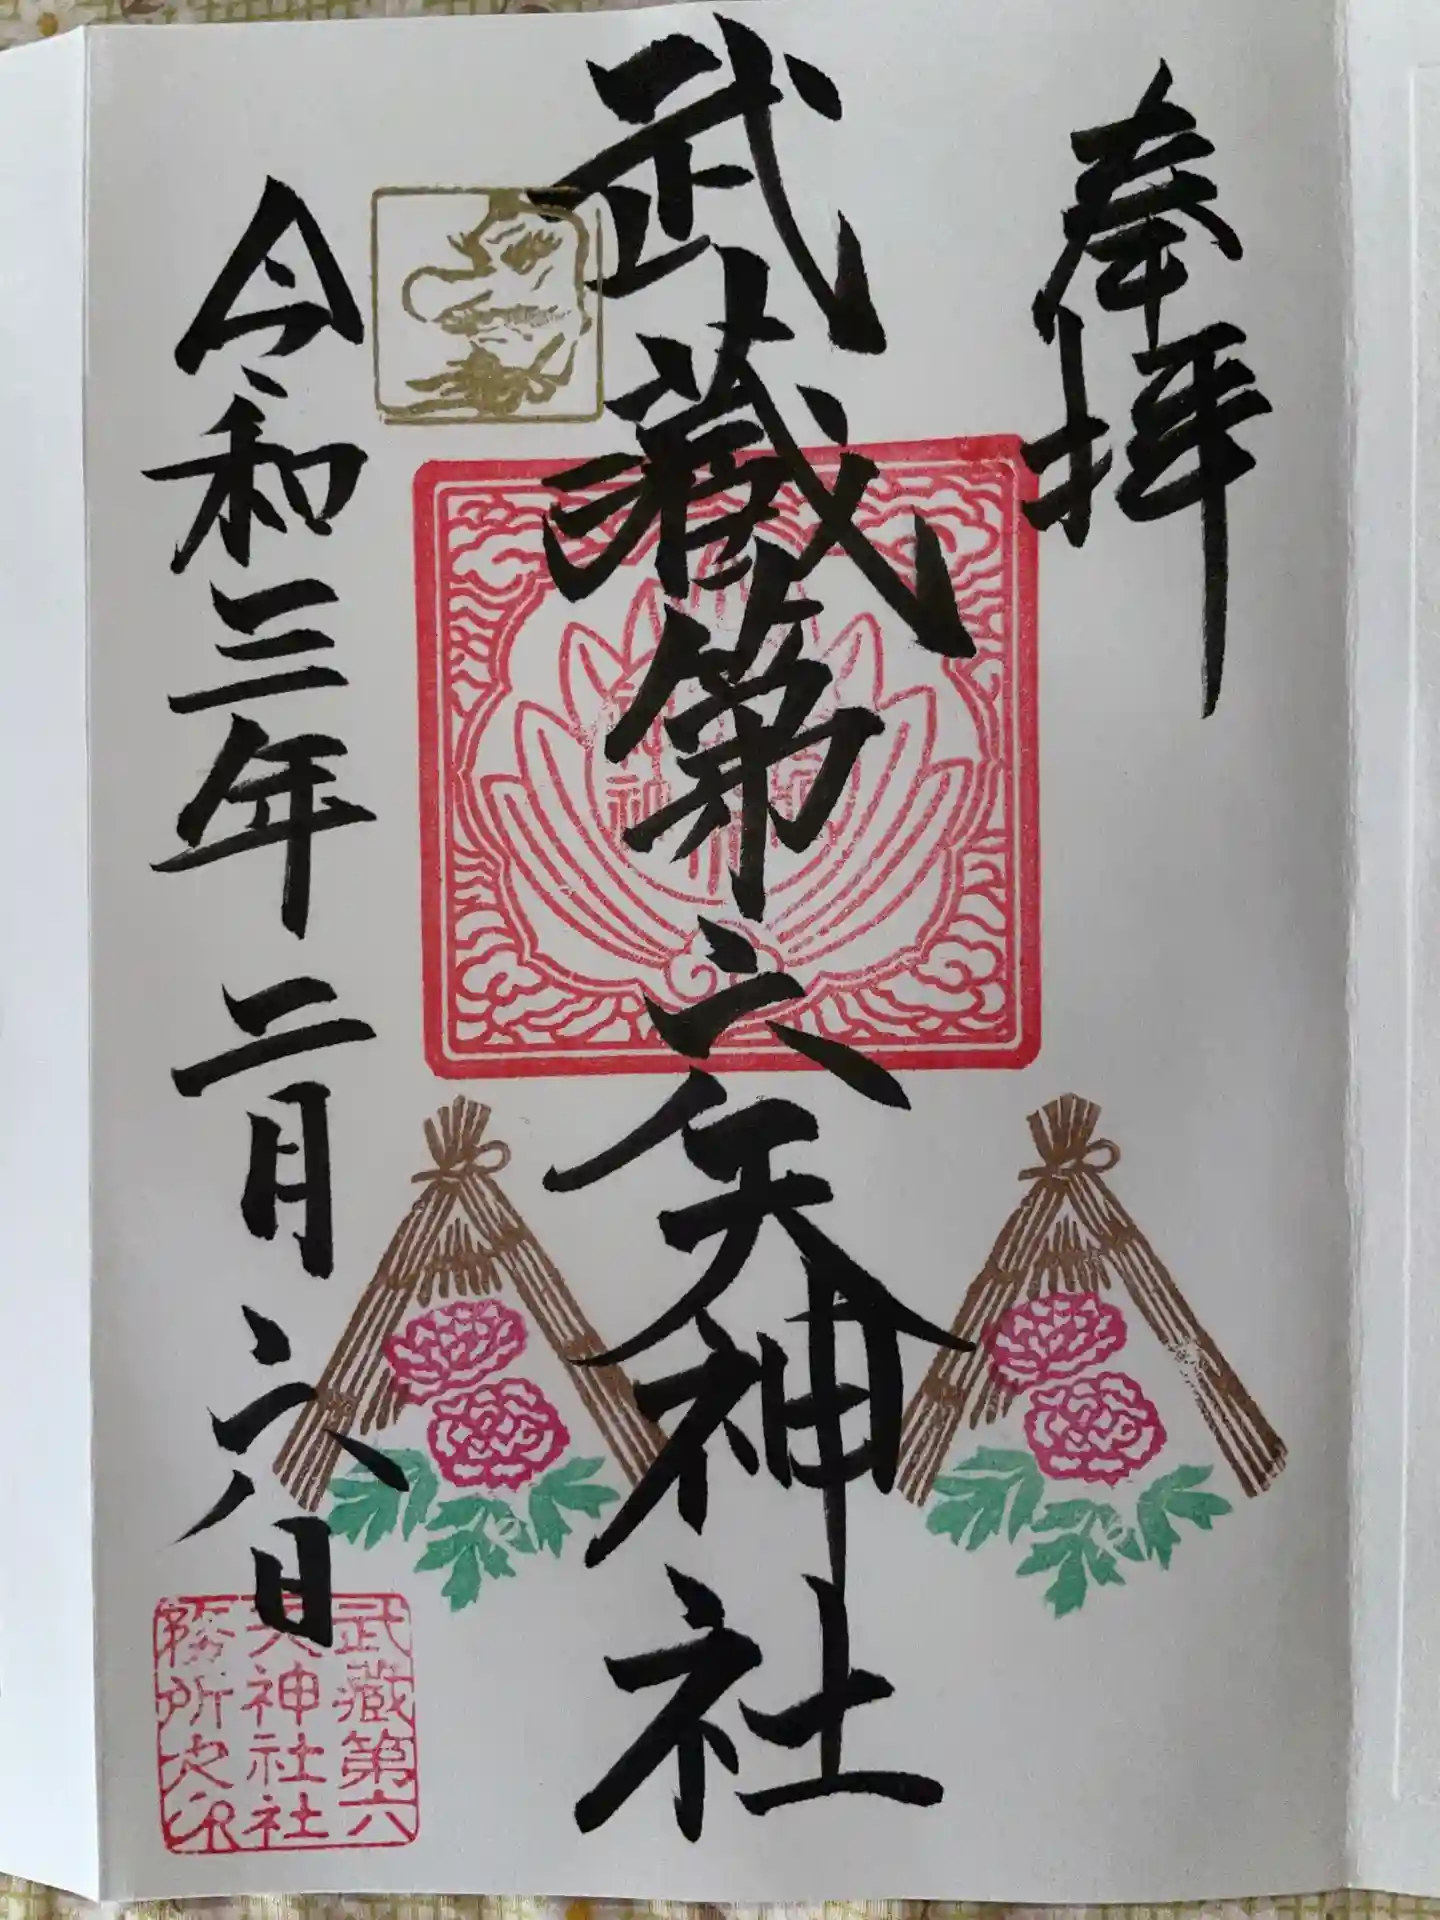 奉拝
武蔵第六天神社
令和三年二月六日
武蔵第六
天神社社
務所之印